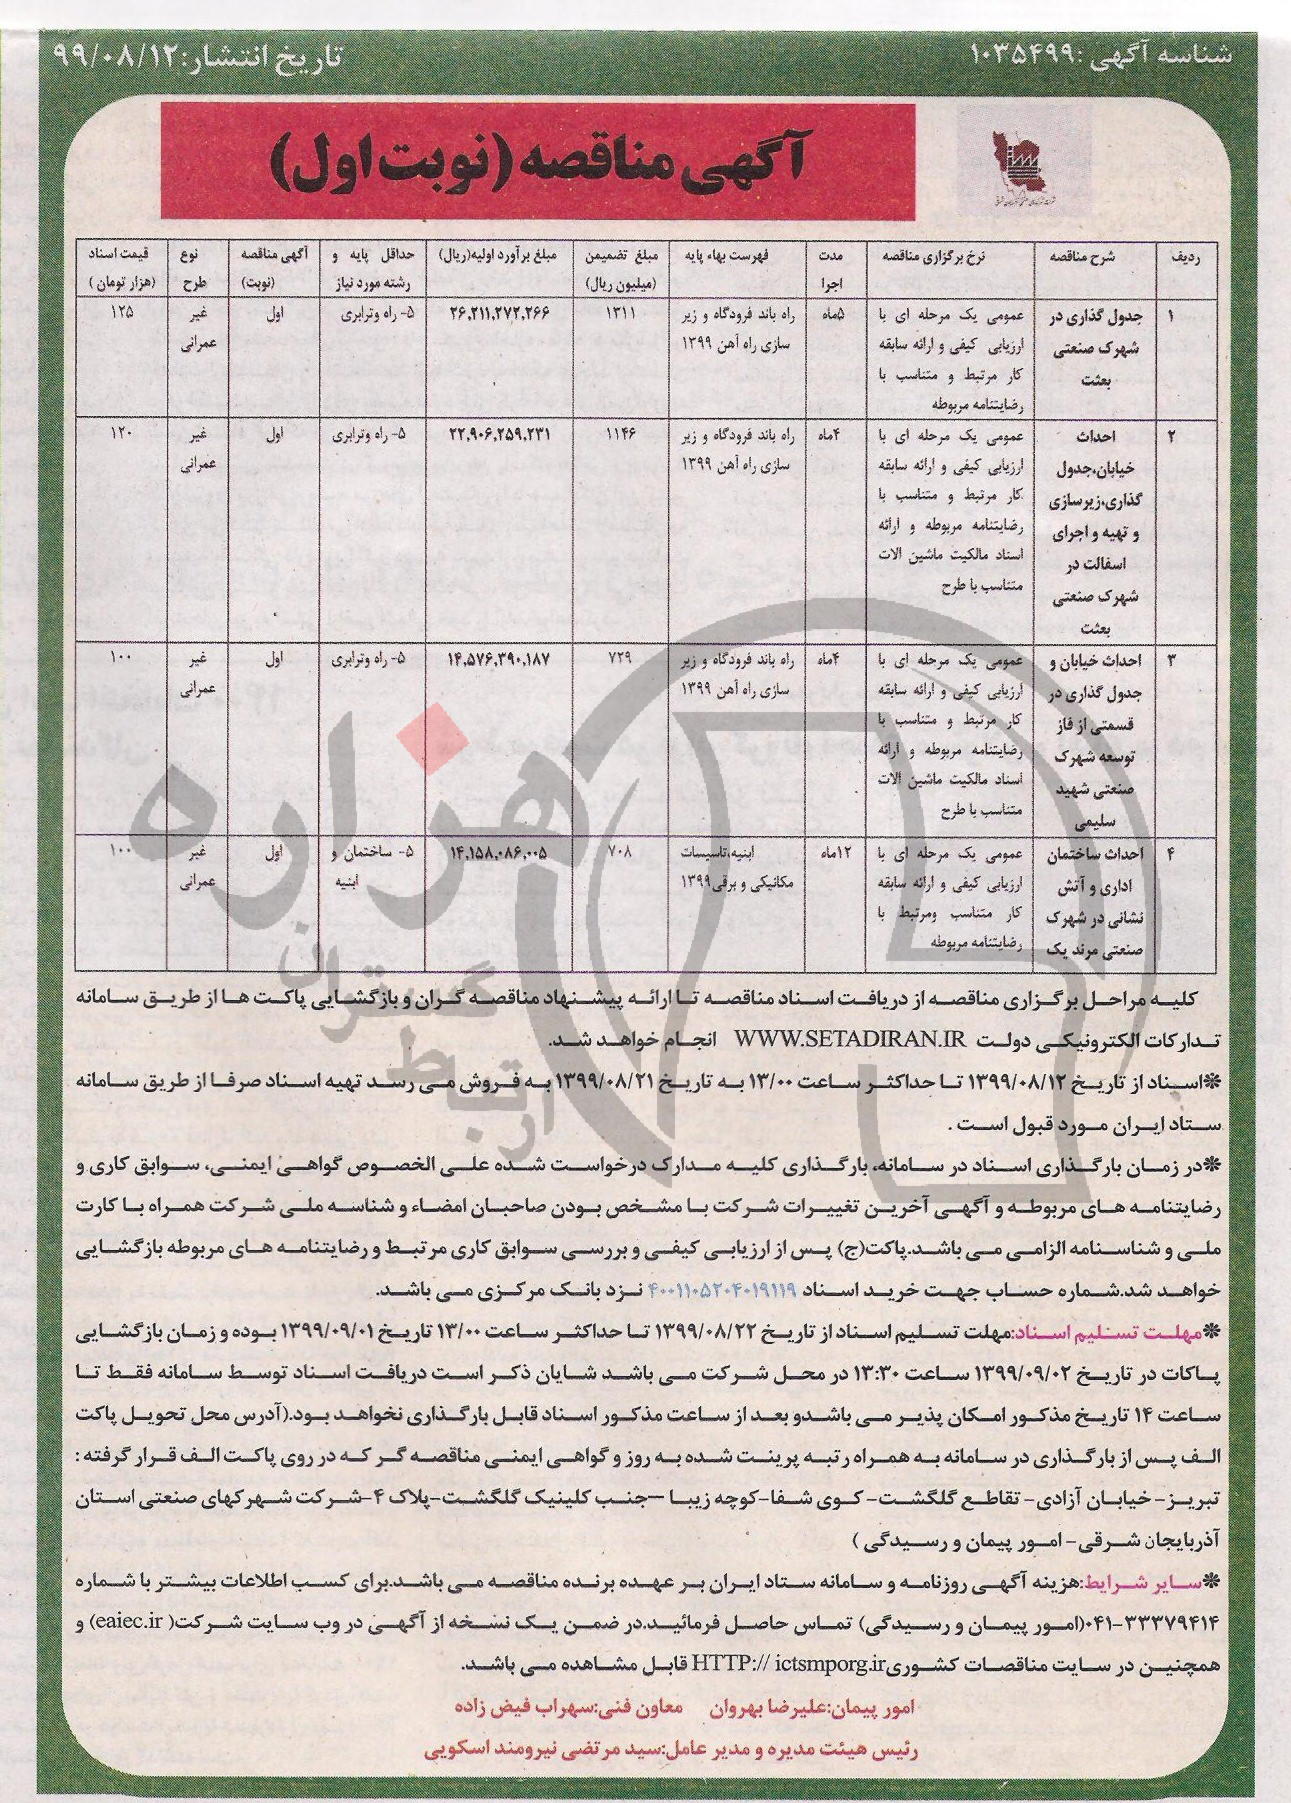 شناسه آگهی :۱۰۳۵۴۹۹
تاریخ انتشار:۹۹/۰۸/۱۲
آگهی مناقصه (نوبت اول)
ردیف | شرح مناقصه | نرخ برگزاری مناقصه | مدت اجرا | فهرست بهاء پایه | مبلغ تضمین (میلیون ریال) | مبلغ برآورد اولیه(ریال) | حداقل پایه و رشته مورد نیاز | آگهی مناقصه (نوبت) | نوع طرح | قیمت اسناد (هزار تومان )
۱ | جدول گذاری در شهرک صنعتی بعثت | عمومی یک مرحله ای با ارزیابی کیفی و ارائه سابقه کار مرتبط و متناسب با رضایتنامه مربوطه | ۵ماه | راه باند فرودگاه و زیر سازی راه آهن ۱۳۹۹ | ۱۳۱۱ | ۲۶,۲۱۱,۲۷۲,۲۶۶ | ۵- راه وترابری | اول | غیر عمرانی | ۱۲۵
۲ | احداث خیابان،جدول گذاری،زیرسازی و تهیه و اجرای اسفالت در شهرک صنعتی بعثت | عمومی یک مرحله ای با ارزیابی کیفی و ارائه سابقه کار مرتبط و متناسب با رضایتنامه مربوطه و ارائه اسناد مالکیت ماشین الات متناسب با طرح | ۴ماه | راه باند فرودگاه و زیر سازی راه آهن ۱۳۹۹ | ۱۱۴۶ | ۲۲,۹۰۶,۲۵۹,۲۳۱ | ۵- راه وترابری | اول | غیر عمرانی | ۱۲۰
۳ | احداث خیابان و جدول گذاری در قسمتی از فاز توسعه شهرک صنعتی شهید سلیمی | عمومی یک مرحله ای با ارزیابی کیفی و ارائه سابقه کار مرتبط و متناسب با رضایتنامه مربوطه و ارائه اسناد مالکیت ماشین الات متناسب با طرح | ۴ماه | راه باند فرودگاه و زیر سازی راه آهن ۱۳۹۹ | ۷۲۹ | ۱۴,۵۷۶,۳۹۰,۱۸۷ | ۵- راه وترابری | اول | غیر عمرانی | ۱۰۰
۴ | احداث ساختمان اداری و آتش نشانی در شهرک صنعتی مرند یک | عمومی یک مرحله ای با ارزیابی کیفی و ارائه سابقه کار متناسب ومرتبط با رضایتنامه مربوطه | ۱۲ماه | ابنیه،تاسیسات مکانیکی و برقی۱۳۹۹ | ۷۰۸ | ۱۴,۱۵۸,۰۸۶,۰۰۵ | ۵- ساختمان و ابنیه | اول | غیر عمرانی | ۱۰۰
کلیه مراحل برگزاری مناقصه از دریافت اسناد مناقصه تا ارائه پیشنهاد مناقصه گران و بازگشایی پاکت ها از طریق سامانه
تدارکات الکترونیکی دولت WWW.SETADIRAN.IR انجام خواهد شد.
❊اسناد از تاریخ ۱۳۹۹/۰۸/۱۲ تا حداکثر ساعت ۱۳/۰۰ به تاریخ ۱۳۹۹/۰۸/۲۱ به فروش می رسد تهیه اسناد صرفا از طریق سامانه
ستاد ایران مورد قبول است .
❊در زمان بارگذاری اسناد در سامانه، بارگذاری کلیه مدارک درخواست شده علی الخصوص گواهی ایمنی، سوابق کاری و
رضایتنامه های مربوطه و آگهی آخرین تغییرات شرکت با مشخص بودن صاحبان امضاء و شناسه ملی شرکت همراه با کارت
ملی و شناسنامه الزامی می باشد.پاکت(ج) پس از ارزیابی کیفی و بررسی سوابق کاری مرتبط و رضایتنامه های مربوطه بازگشایی
خواهد شد.شماره حساب جهت خرید اسناد ۴۰۰۱۱۰۵۲۰۴۰۱۹۱۱۹ نزد بانک مرکزی می باشد.
❊مهلت تسلیم اسناد:مهلت تسلیم اسناد از تاریخ ۱۳۹۹/۰۸/۲۲ تا حداکثر ساعت ۱۳/۰۰ تاریخ ۱۳۹۹/۰۹/۰۱ بوده و زمان بازگشایی
پاکات در تاریخ ۱۳۹۹/۰۹/۰۲ ساعت ۱۳:۳۰ در محل شرکت می باشد شایان ذکر است دریافت اسناد توسط سامانه فقط تا
ساعت ۱۴ تاریخ مذکور امکان پذیر می باشدو بعد از ساعت مذکور اسناد قابل بارگذاری نخواهد بود.(آدرس محل تحویل پاکت
الف پس از بارگذاری در سامانه به همراه رتبه پرینت شده به روز و گواهی ایمنی مناقصه گر که در روی پاکت الف قرار گرفته :
تبریز- خیابان آزادی- تقاطع گلگشت- کوی شفا-کوچه زیبا –جنب کلینیک گلگشت-پلاک ۴-شرکت شهرکهای صنعتی استان
آذربایجان شرقی- امور پیمان و رسیدگی )
❊سایر شرایط:هزینه آگهی روزنامه و سامانه ستاد ایران بر عهده برنده مناقصه می باشد.برای کسب اطلاعات بیشتر با شماره
۰۴۱-۳۳۳۷۹۴۱۴(امور پیمان و رسیدگی) تماس حاصل فرمائید.در ضمن یک نسخه از آگهی در وب سایت شرکت( eaiec.ir) و
همچنین در سایت مناقصات کشوریHTTP:// ictsmporg.ir قابل مشاهده می باشد.
امور پیمان:علیرضا بهروان معاون فنی:سهراب فیض زاده
رئیس هیئت مدیره و مدیر عامل:سید مرتضی نیرومند اسکویی
هزاره
ارتباط گستران